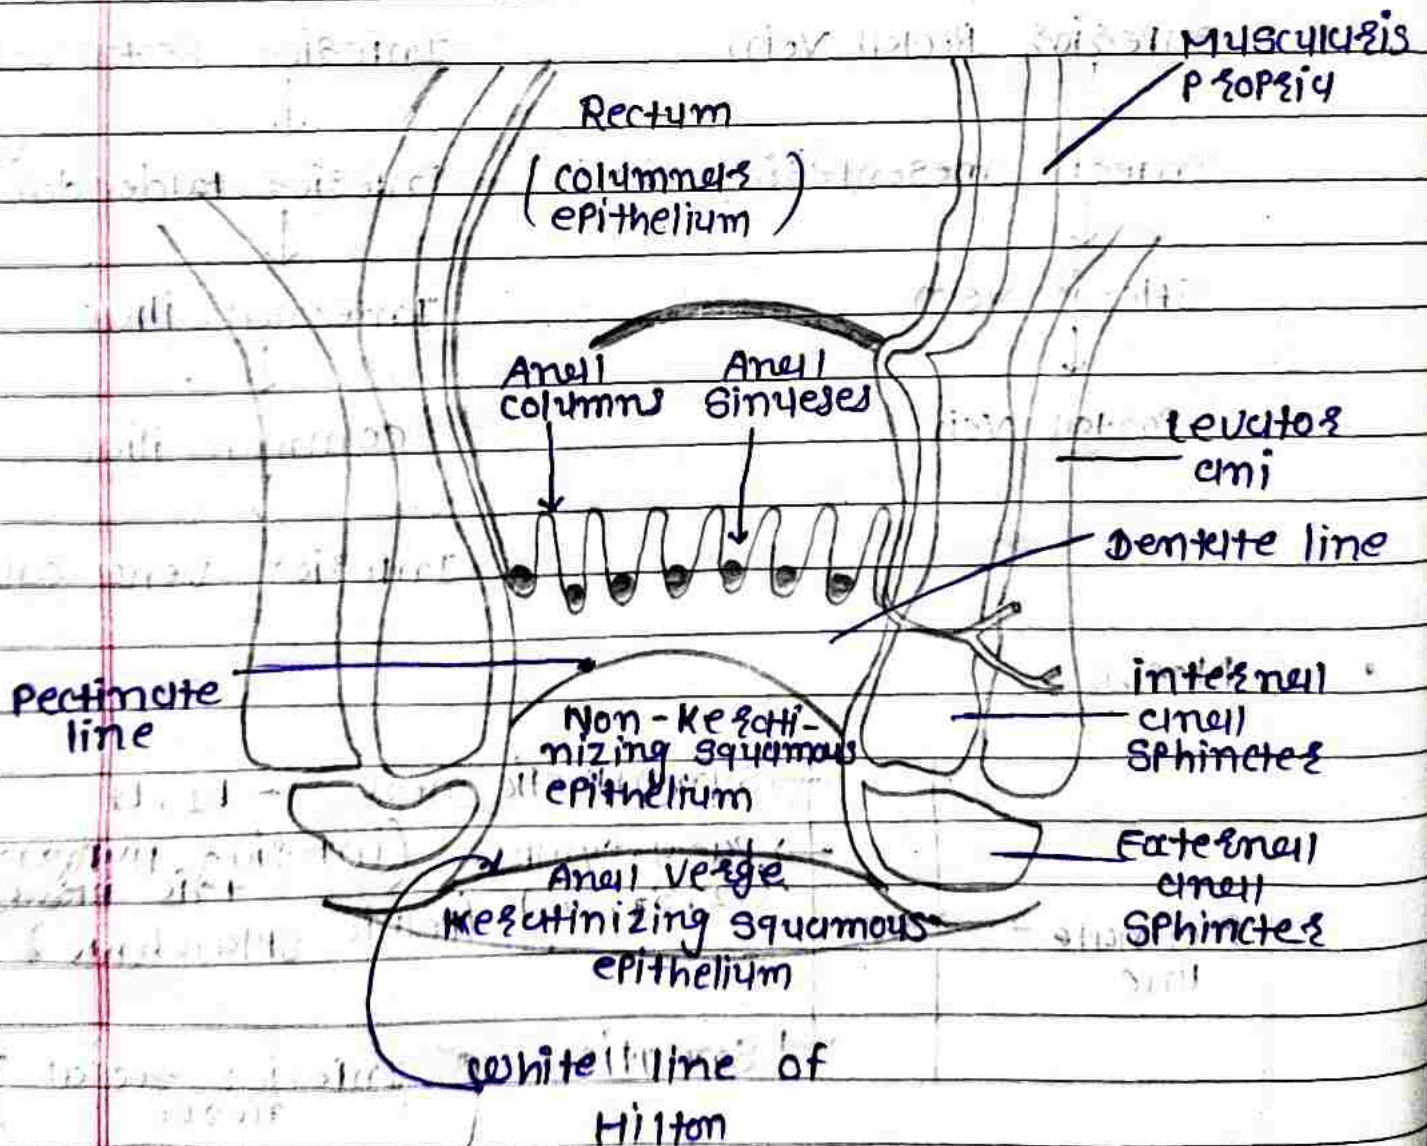 Muscularis
propria
Rectum
(columnar
epithelium)
Anal
columns
Anal
Sinueses
Levator
ani
Dentate line
Pectinate
line
internal
anal
Sphincter
Non-Kerati-
nizing squamous
epithelium
External
anal
Sphincter
Anal verge
Keratinizing squamous
epithelium
White line of
Hilton